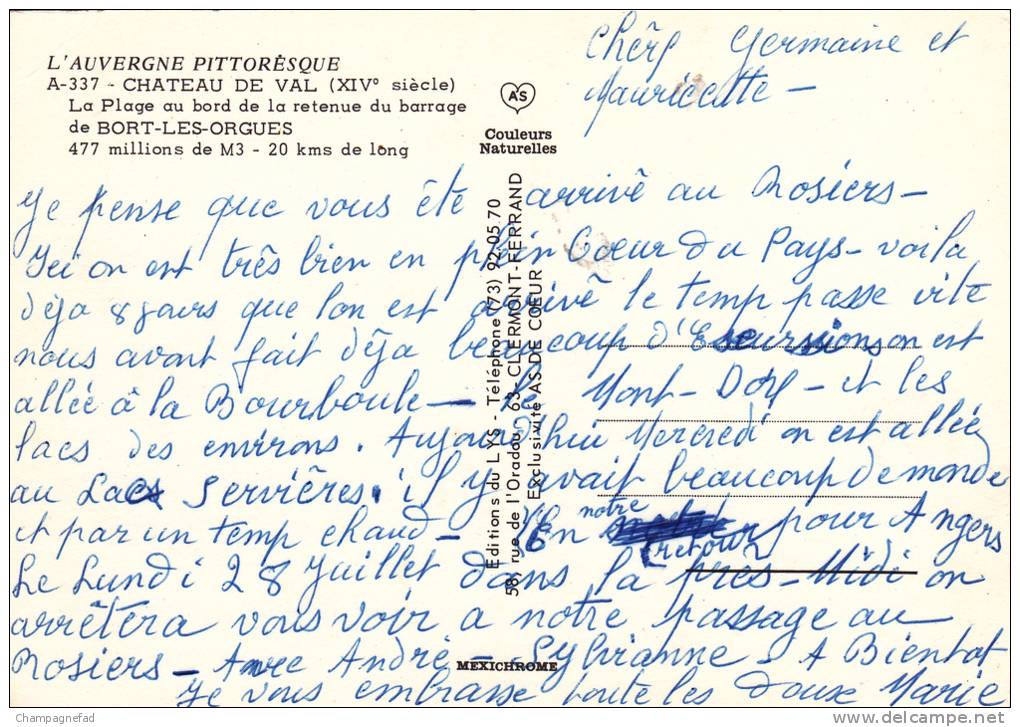 L'AUVERGNE PITTORÈSQUE
A-337 - CHATEAU DE VAL (XIV° siècle)
La Plage au bord de la retenue du barrage
de BORT-LES-ORGUES
477 millions de M3 - 20 kms de long
AS
Couleurs
Naturelles
Editions du LYS - Téléphone (73) 92-05 70
58, rue de l'Oradou - 63 - CLERMONT-FERRAND
Exclusivité AS DE COEUR
MEXICHROME
Chêrs Germaine et
Mauricette -
Je pense que vous été arrivê au Rosiers -
Ici on est três bien en plein Coeur du Pays - voila
dêja 8 jours que l'on est arrivê le temp passe vite
nous avont fait dêja beaucoup d'Escurssions on est
allée â la Bourboule - Le Mont-Dore - et les
lacs des environs. Aujourd'hui Mercredi on est allée
au Lac Servières. il y avait beaucoup de monde
et par un temp chaud - En notre retour pour Angers
Le Lundi 28 Juillet dans la près-Midi on
arrêtera vous voir a notre passage au
Rosiers - Avec Andrè - Sylvianne - A Bientot
Je vous embrasse toute les doux Marie
Champagnefad
delcampe.net